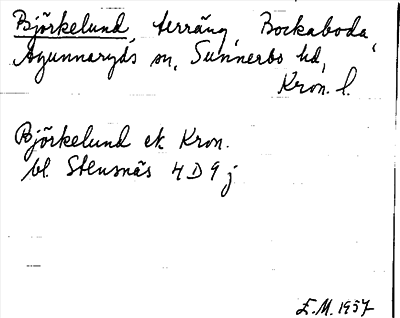 Björkelund, terräng, Bockaboda,
Agunnaryds sn, Sunnerbo hd,
Kron. l.
Björkelund ek Kron.
bl. Stensnäs 4D9j
E.M. 1957